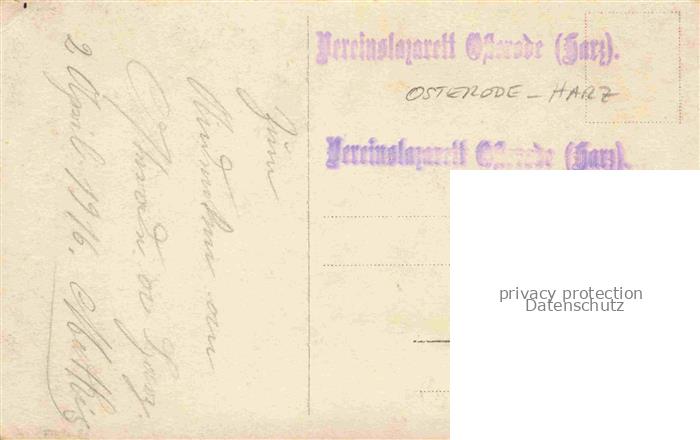 Zum
Andenken an
Osterode Harz.
2 April 1916.
Vereinslazarett Osterode (Harz).
OSTERODE - HARZ
Vereinslazarett Osterode (Harz).
privacy protection
Datenschutz